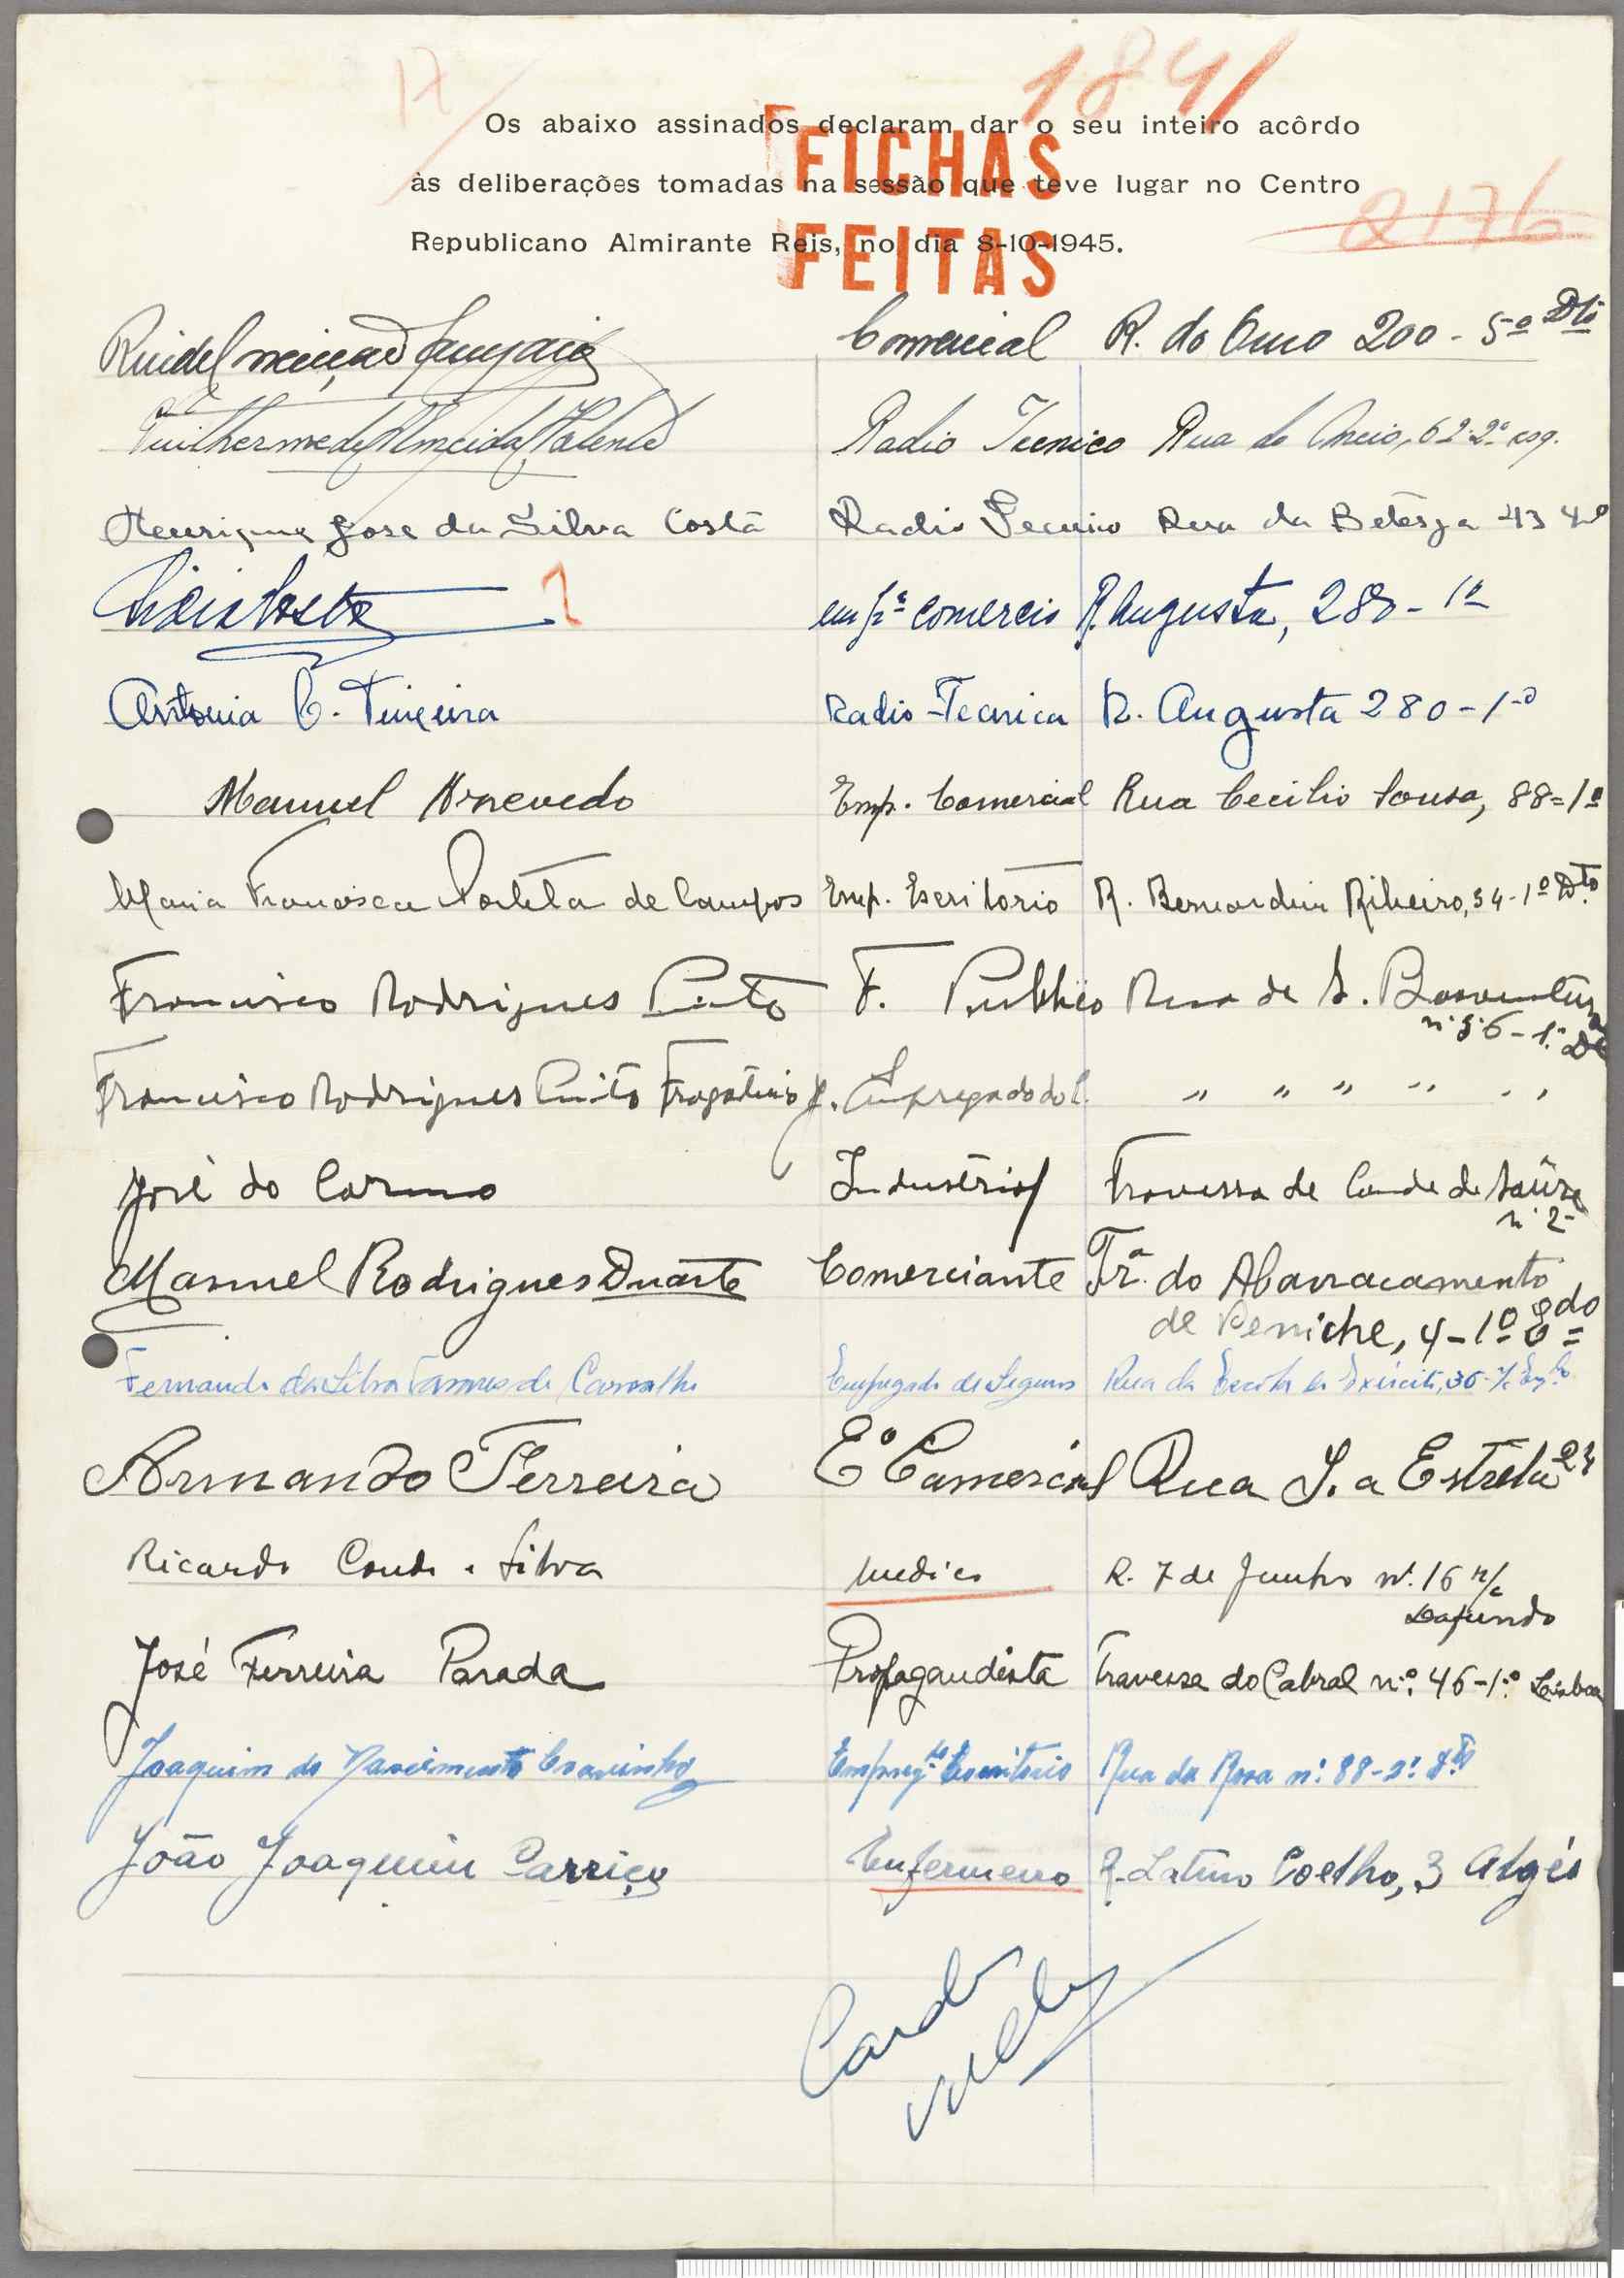 17
1841
Os abaixo assinados declaram dar o seu inteiro acôrdo
às deliberações tomadas na sessão que teve lugar no Centro
Republicano Almirante Reis, no dia 8-10-1945.
FICHAS
FEITAS
2176
Comercial R. do Ouro 200 - 5º Dto
Guilherme de Almeida Valente Radio Tecnico Rua do Arcio, 62-2º esq.
Henrique Jose da Silva Costa Radio Tecnico Rua da Betesga 43 4º
empº comercio R. Augusta, 280 - 1º
Antonia C. Teixeira Radio-Tecnica R. Augusta 280 - 1º
Manuel Azevedo Emp. Comercial Rua Cecilio Sousa, 88=1º
Maria Francisca de Campos Emp. Escritorio R. Bernardim Ribeiro, 54-1º Dto
Francisco Rodrigues Pinto F. Publico Rua de S. Boaventura
nº 56 - 1º Dto
Francisco Rodrigues Pinto Fragateiro Jr. Empregado do C. " " " " "
José do Carmo Industrial Travessa de Conde de Saûre
nº 2-
Manuel Rodrigues Duarte Comerciante Trª. do Abarracamento
de Peniche, 4-1º Edo
Fernando da Silva Tavares de Carvalho Empregado de Seguros Rua da Escola do Exército, 36-
Armando Ferreira Eº Camercial Rua S. a Estrela 24
Ricardo Conde e Silva Medico R. 7 de Junho nº. 16 r/c
Dafundo
José Ferreira Parada Propagandista Travessa do Cabral nº. 46-1º. Lisboa
Joaquim do Nascimento Courinho Empregdo Escritorio Rua da Rosa nº. 88-2º. Dto
João Joaquim Carriço Enfermeiro R. Latino Coelho, 3 Algés